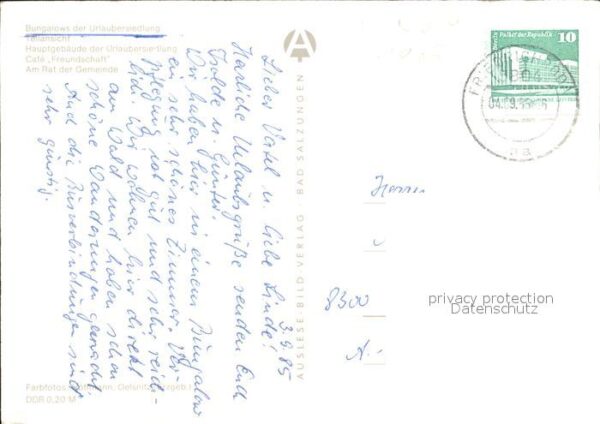 Bungalows der Urlaubersiedlung
Teilansicht
Hauptgebäude der Urlaubersiedlung
Café „Freundschaft"
Am Rat der Gemeinde
3.9.85
Lieber Vati u. liebe Linde!
Herzliche Urlaubsgrüße senden Euch
Isolde u. Günter.
Wir haben hier in einem Bungalow
ein sehr schönes Zimmer. Ver-
pflegung ist gut und sehr reich-
lich. Wir wohnen hier direkt
am Wald und haben schon
schöne Wanderungen gemacht.
Auch die Busverbindungen sind
sehr günstig.
AUSLESE BILD VERLAG BAD SALZUNGEN
Palast der Republik 10
DDR
804
04.-9.85
aa
Herrn
8300
privacy protection
Datenschutz
Farbfotos
DDR 0,20 M